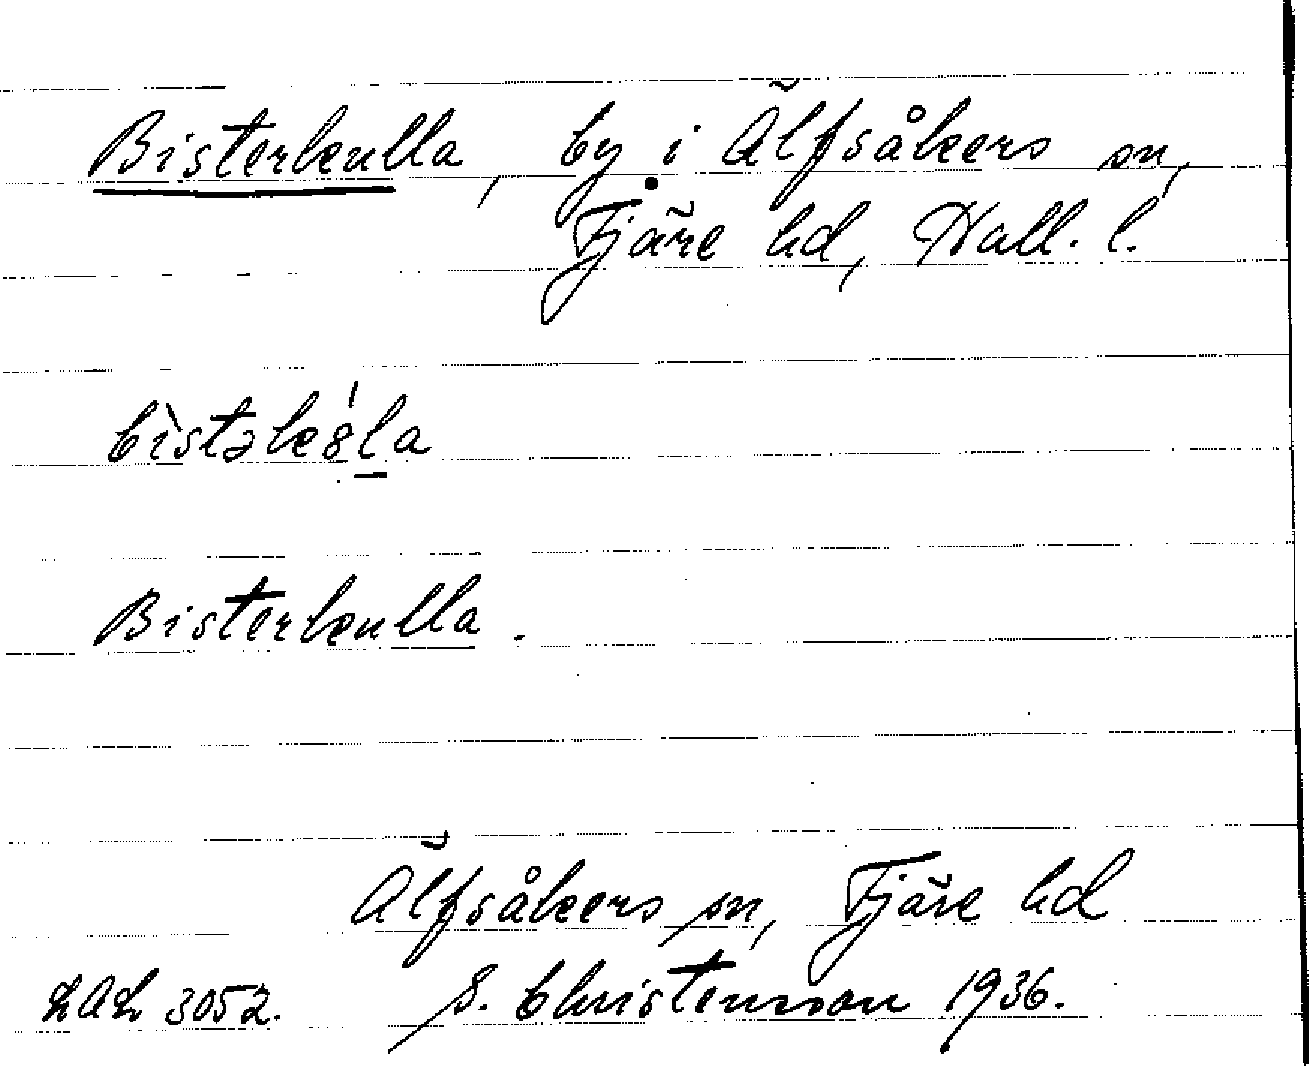 Bisterkulla, by i Älfsåkers sn,
Fjäre hd, Hall. l.
bìstəkȣ́l̠a
Bisterkulla.
Älfsåkers sn, Fjäre hd
LAL 3052. S. Christensson 1936.